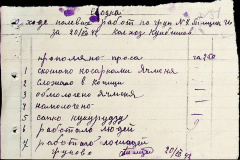 Сводка
О ходе полевых работ по груп № 2
за 20/VII 42 колхоз Куйбишев
прополяно проса га 250
1 скошено косарками ячменя
2 сложено в копиц
3 обмолочено ячменя
4 намолочено
5 сапко кукурудзи
6 работало людей
7 работало лошадей
20/VII 42